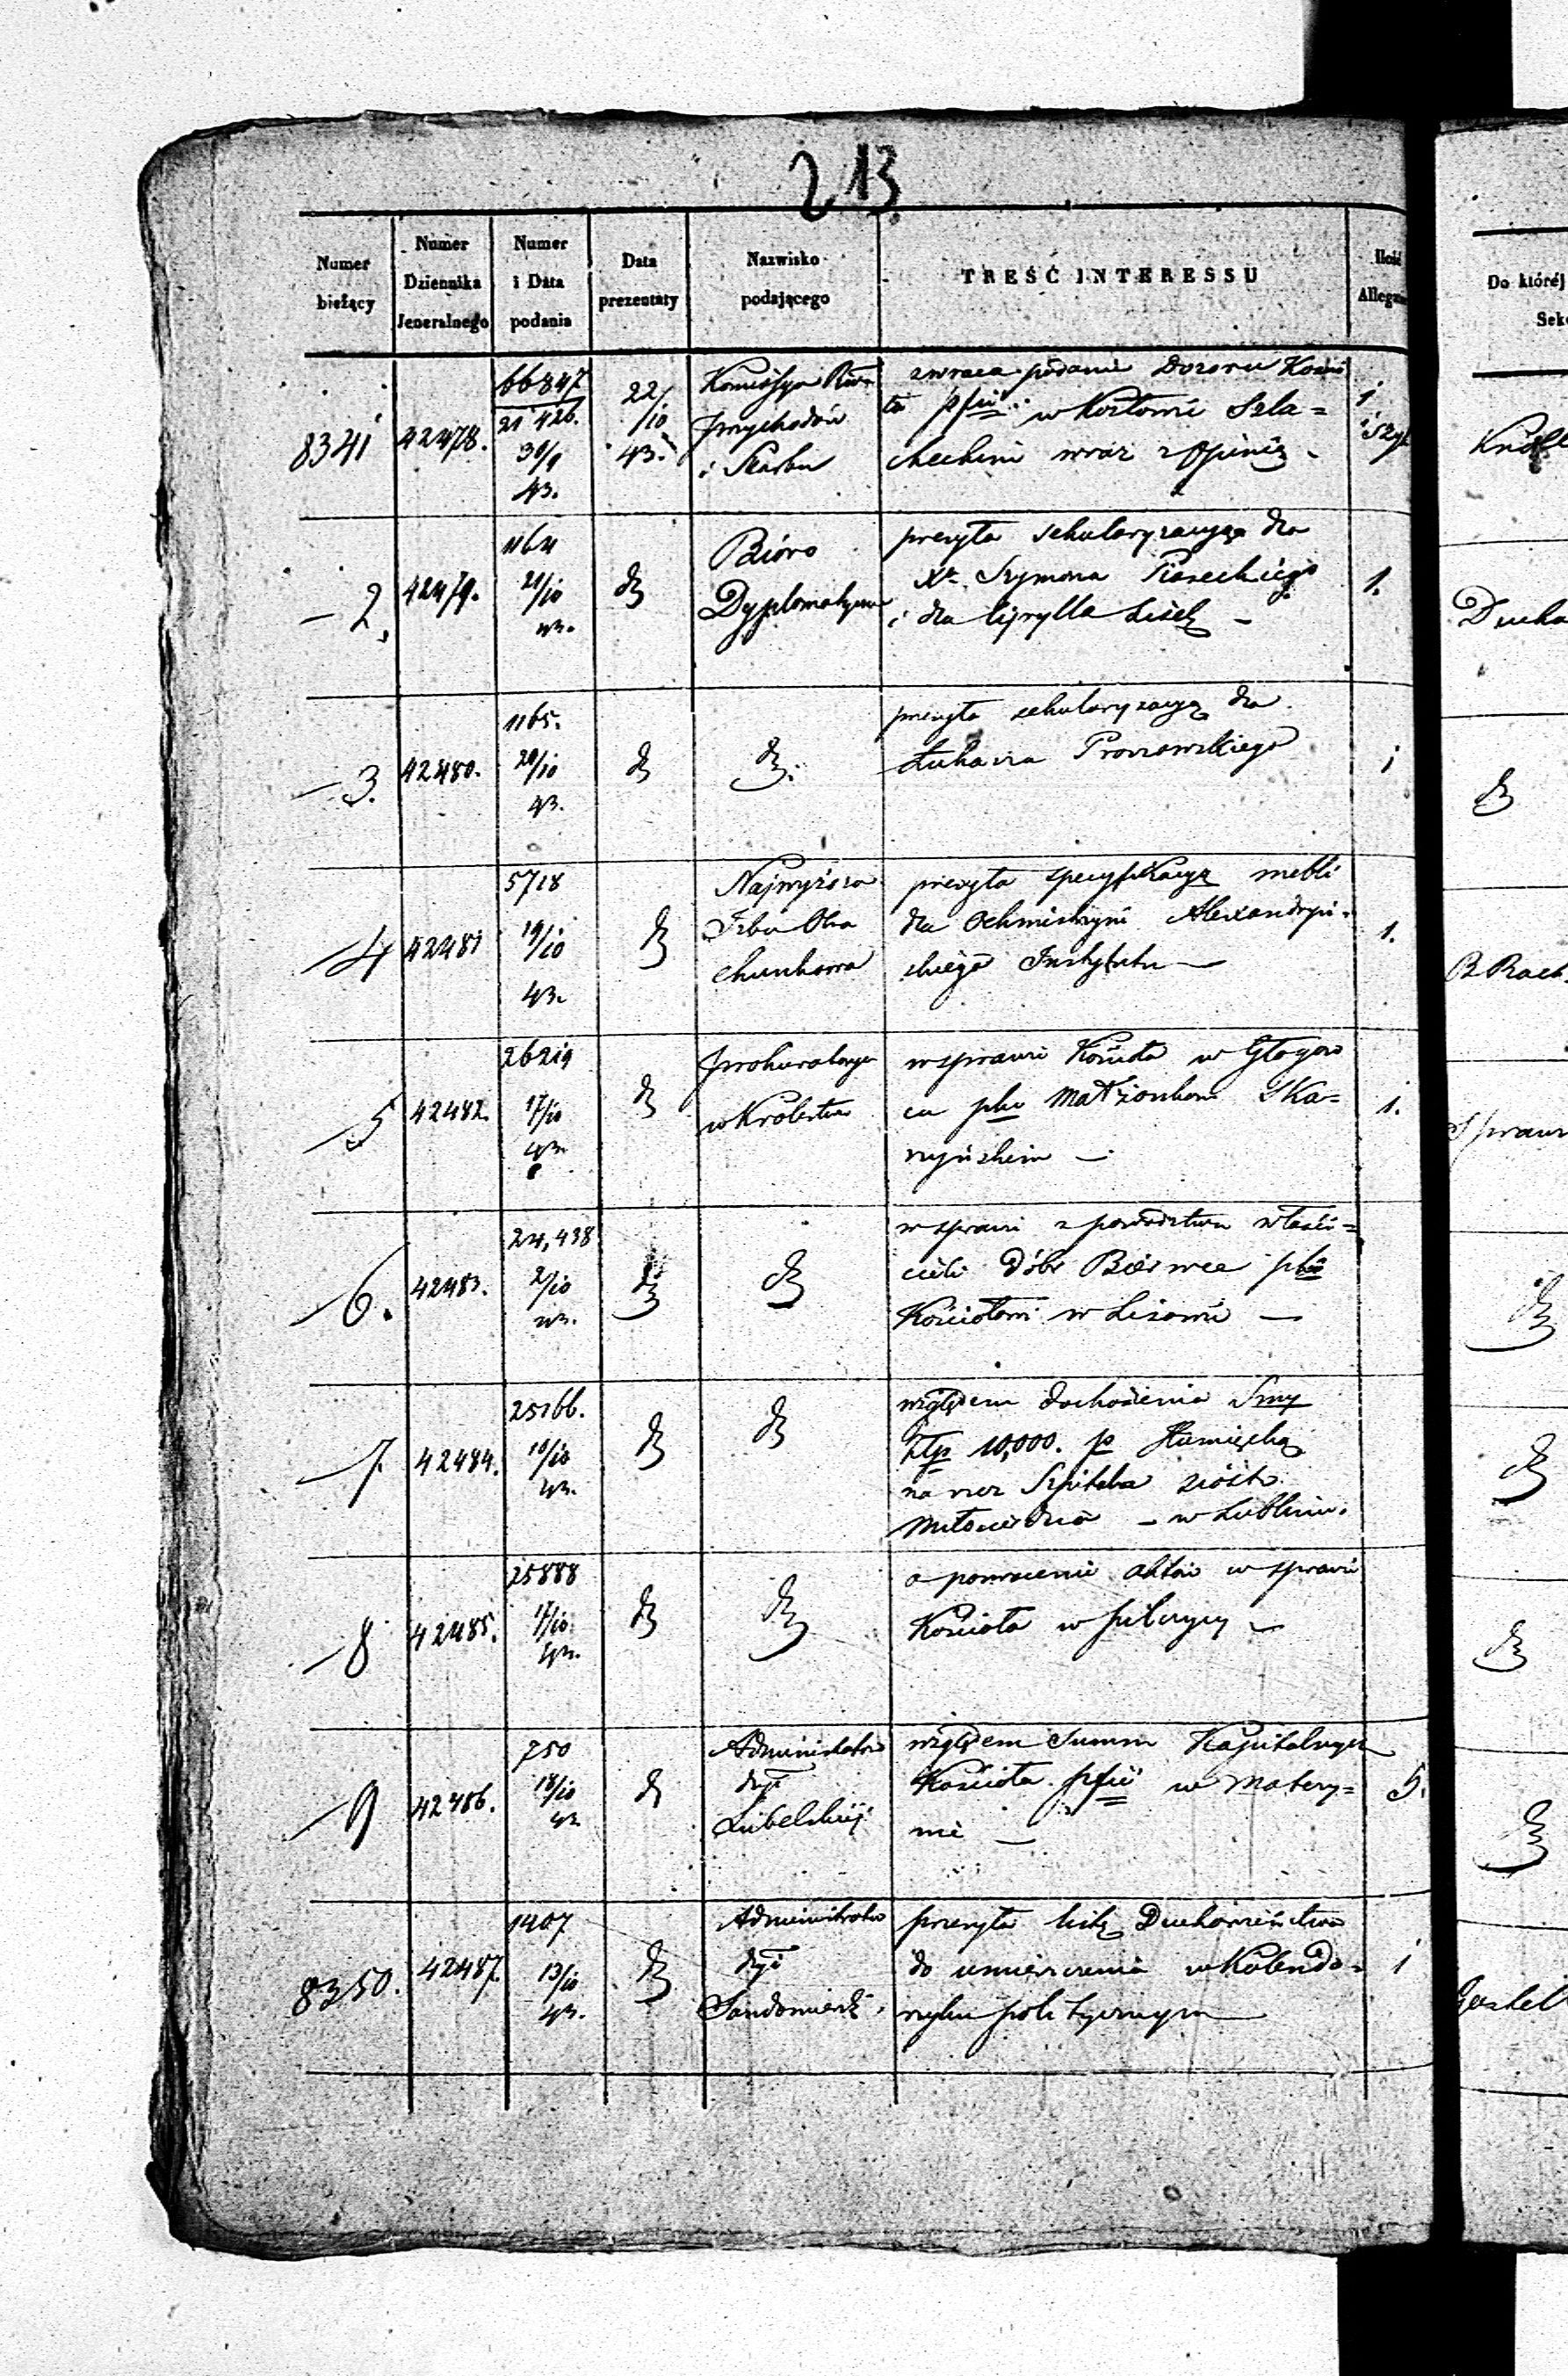 213
Numer bieżący
Numer Dziennika Jeneralnego
Numer i Data podania
Data prezentaty
Nazwisko podającego
TREŚĆ INTERESSU
Ilość
Do której
8341
42478.
66847
21426.
30/9
43.
22/10
43.
Komissya
Przychodów
i Skarbu
zwraca podanie Dozoru Kościo
ła w Kozłowie Szla=
checkim wraz z Opinią
1
2.
42479.
1164
21/10
43.
Bióro
Dyplomatyczne
przesyła sekularyzacyą dla
Xa Szymona Piaseckiego
i dla Cyrylla
1.
3.
42480.
1165.
20/10
43.
przesyła sekularyzacyą dla
Łukasza
1
4
42481
5718
19/10
43.
Najwyższa
Izba Obra
chunkowa
przesyła specyfikacyą mebli
dla Ochmistrzyni Alexandryi-
skiego Instytutu —
1.
5
42482.
26219
17/10
43.
Prokuratorya
w Królestwie
w sprawie Kościoła w Głogow
cu pko Małżonkom Ska=
rzyńskim —
1.
6.
42483.
24,438
2/10
43.
w sprawie z powództwa właści=
cieli Dóbr Bierwce pko
Kościołowi w Lisowie —
7
42484.
25166.
10/10
43.
względem dochodzenia Smy
złp 10,000. p Humięcką
na rzecz Szpitala Sióstr
Miłosierdzia — w Lublinie.
8
42485.
25888
17/10
43.
o powrócenie aktów w sprawie
Kościoła w Pilczycy —
9
42486.
750
18/10
43
Administrator
dyi
Lubelskiej
względem Summ Kapitalnych
Kościoła w Matczy=
nie —
5.
8350.
42487.
1407
13/10
43.
Administrator
dyi
Sandomierski
przesyła listę Duchowieństwa
do umieszczenia w Kalenda=
rzyku politycznym
1